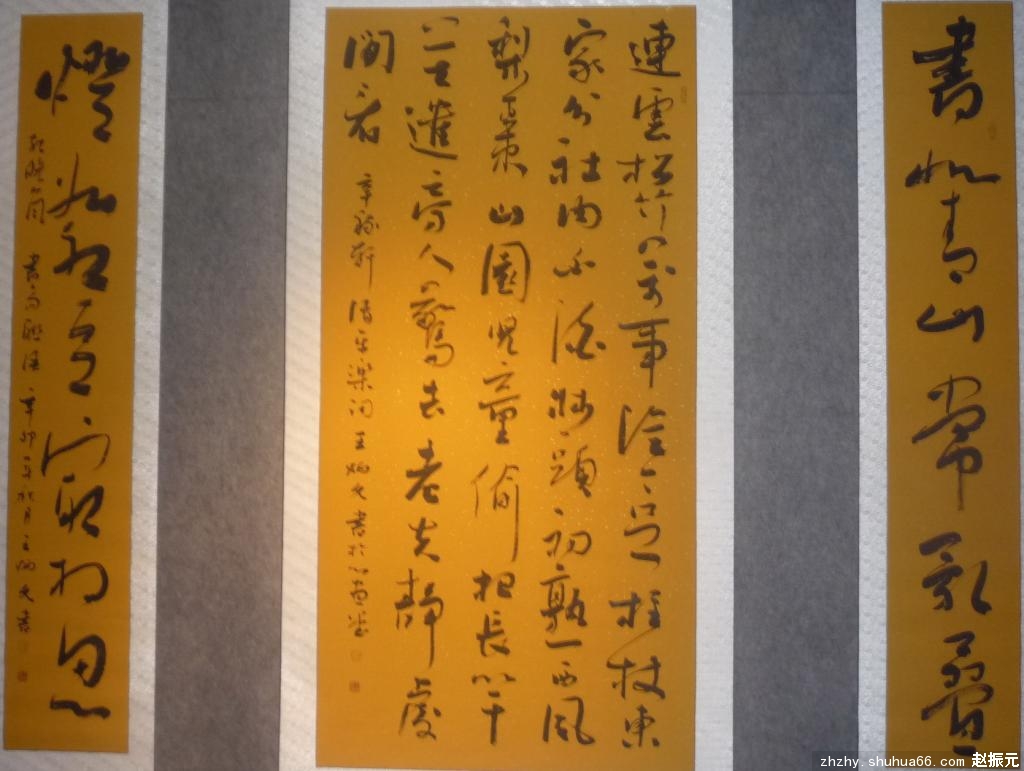 書如青山常亂疊
連雲松竹萬事從今足拄杖東
家分社肉白酒牀頭初熟西風
梨棗山園兒童偷把長竿
莫遣旁人驚去老夫靜處
閒看 辛稼軒清平樂詞 王炳文書於
燈如紅豆最相思
紀曉嵐 書 聯語 辛卯年秋月王炳文書
zhzhy.shuhua66.com 赵振元